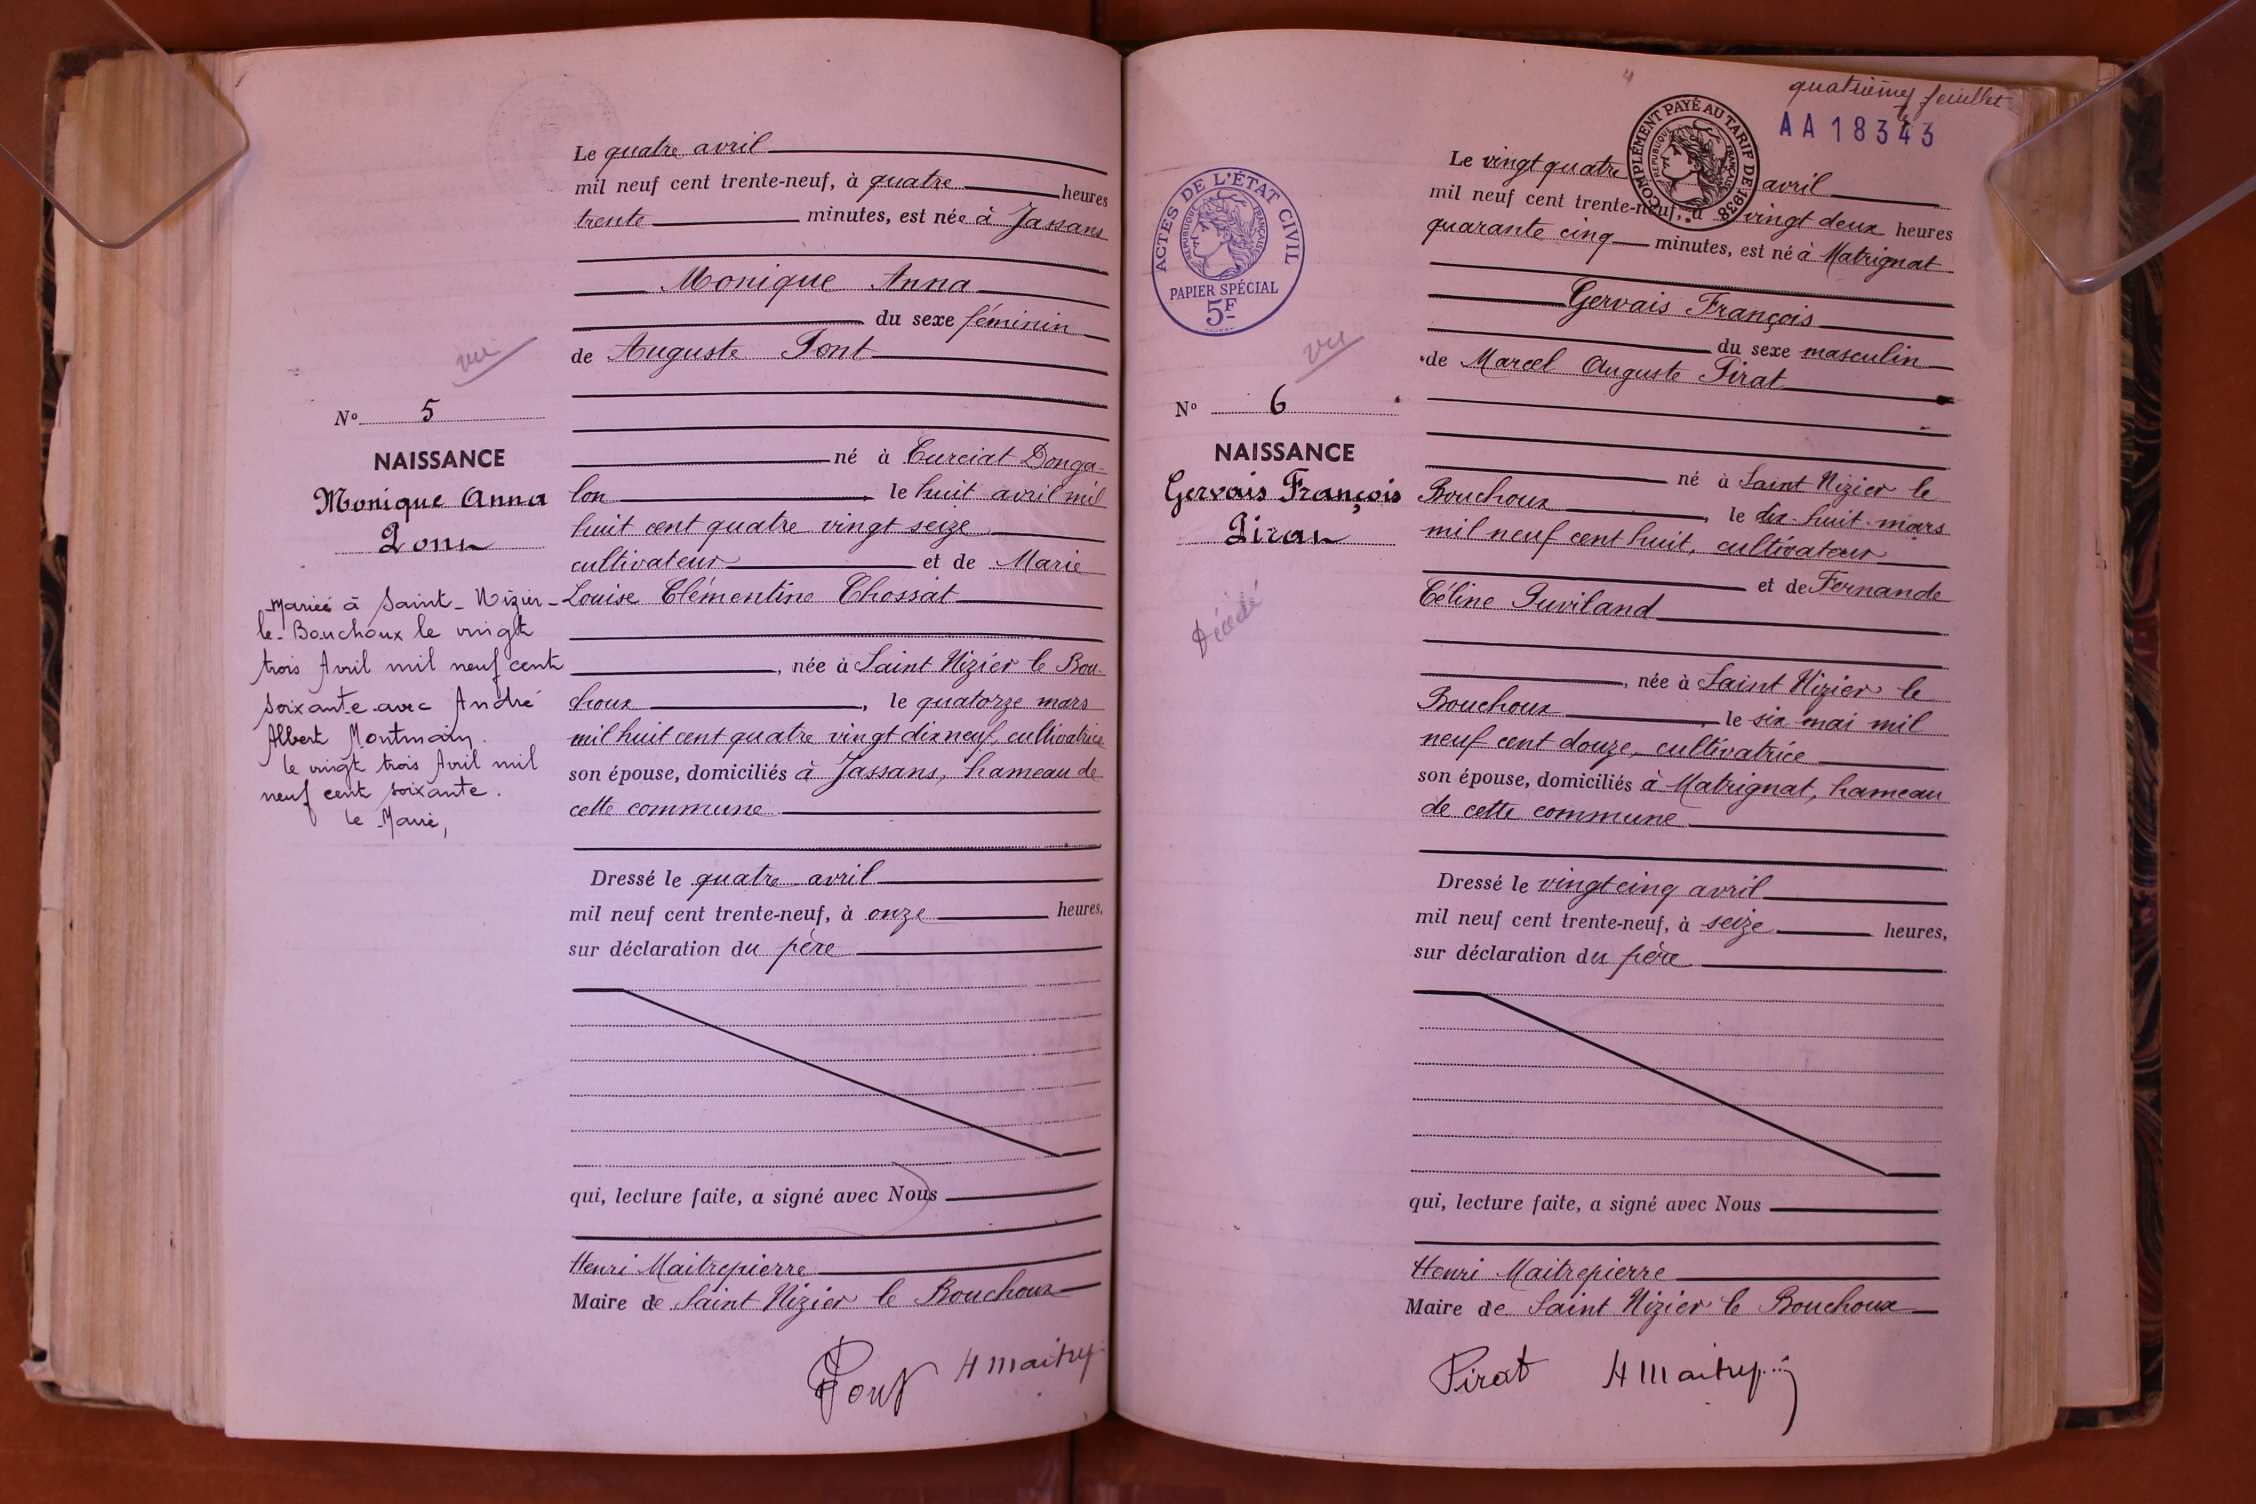 Le quatre avril
mil neuf cent trente-neuf, à quatre heures
trente minutes, est née à Jassans
Monique Anna
du sexe féminin
de Auguste Pont
vu
N° 5
NAISSANCE
Monique Anna
Pont
né à Curciat Donga-
lon, le huit avril mil
huit cent quatre vingt seize
cultivateur et de Marie
Louise Clémentine Chossat
, née à Saint Nizier le Bou-
choux, le quatorze mars
mil huit cent quatre vingt dix neuf, cultivatrice
son épouse, domiciliés à Jassans, hameau de
cette commune
Mariée à Saint-Nizier-
le-Bouchoux le vingt
trois Avril mil neuf cent
soixante avec André
Albert Montmain.
le vingt trois Avril mil
neuf cent soixante.
Le Maire,
Dressé le quatre avril
mil neuf cent trente-neuf, à onze heures,
sur déclaration du père
qui, lecture faite, a signé avec Nous
Henri Maitrepierre
Maire de Saint Nizier le Bouchoux
Pont H Maitrep
4
quatrième feuillet
AA 18343
COMPLÉMENT PAYÉ AU TARIF DE 1938
REPUBLIQUE FRANÇAISE
ACTES DE L'ÉTAT CIVIL
REPUBLIQUE FRANÇAISE
PAPIER SPÉCIAL
5F
Le vingt quatre avril
mil neuf cent trente-neuf, à vingt deux heures
quarante cinq minutes, est né à Matrignat
Gervais François
du sexe masculin
de Marcel Auguste Pirat
vu
N° 6
NAISSANCE
Gervais François
Pirat
Décédé
né à Saint Nizier le
Bouchoux, le dix-huit mars
mil neuf cent huit, cultivateur
et de Fernande
Céline Guviland
, née à Saint Nizier le
Bouchoux, le six mai mil
neuf cent douze, cultivatrice
son épouse, domiciliés à Matrignat, hameau
de cette commune
Dressé le vingt cinq avril
mil neuf cent trente-neuf, à seize heures,
sur déclaration du père
qui, lecture faite, a signé avec Nous
Henri Maitrepierre
Maire de Saint Nizier le Bouchoux
Pirat H Maitrep